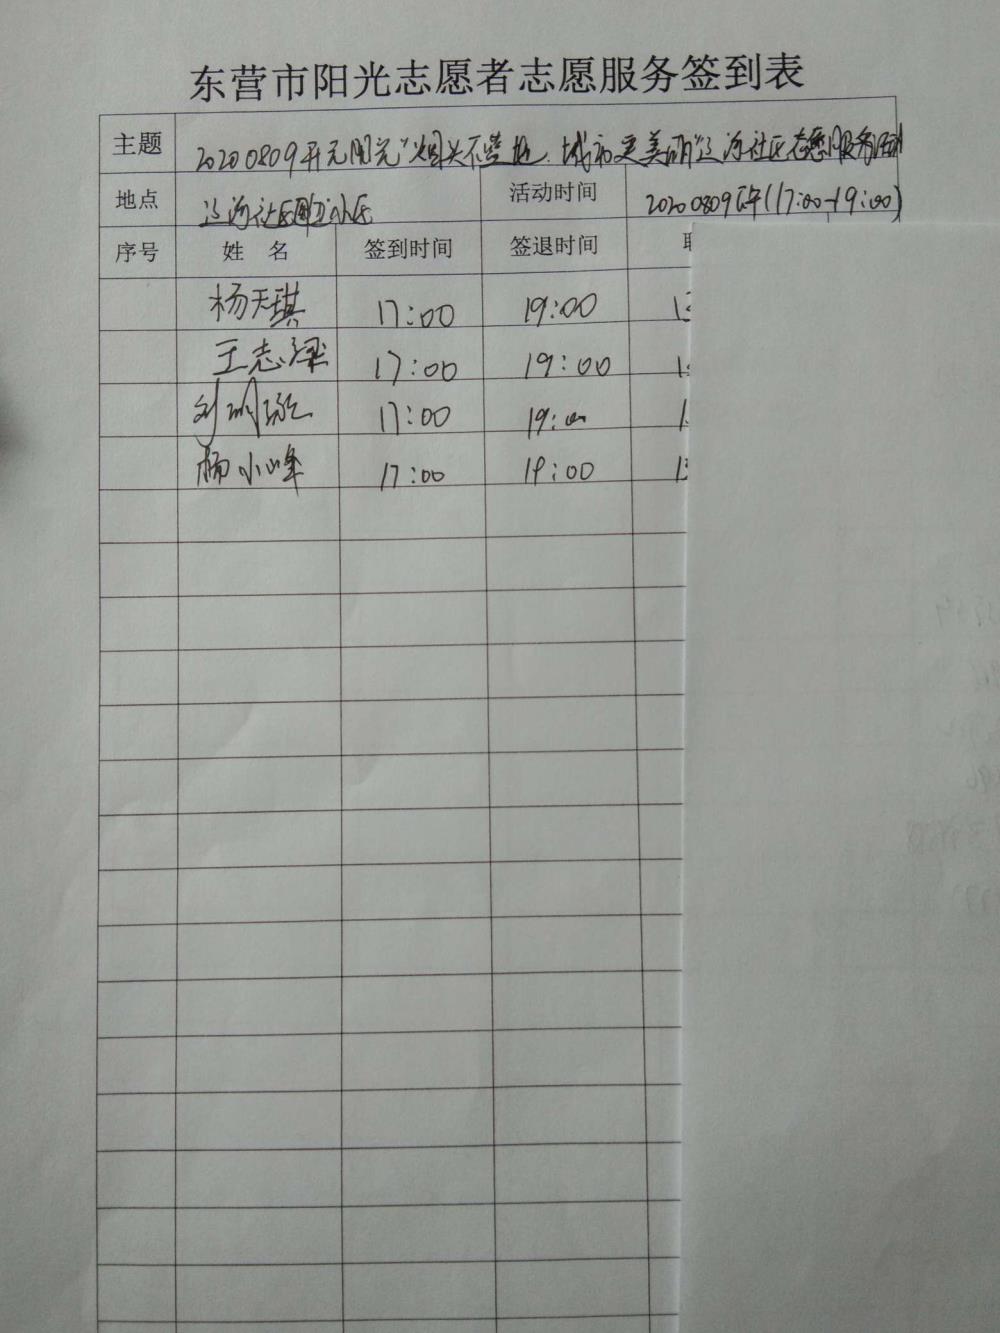 东营市阳光志愿者志愿服务签到表
主题 20200809开元阳光“烟头不落地.城市更美丽”辽河社区志愿服务活动
地点 辽河社区小区 活动时间 20200809下午(17:00-19:00)
序号 姓 名 签到时间 签退时间
杨天琪 17:00 19:00 13
王志梁 17:00 19:00 1
刘明 17:00 19:00 1
杨小峰 17:00 19:00 13